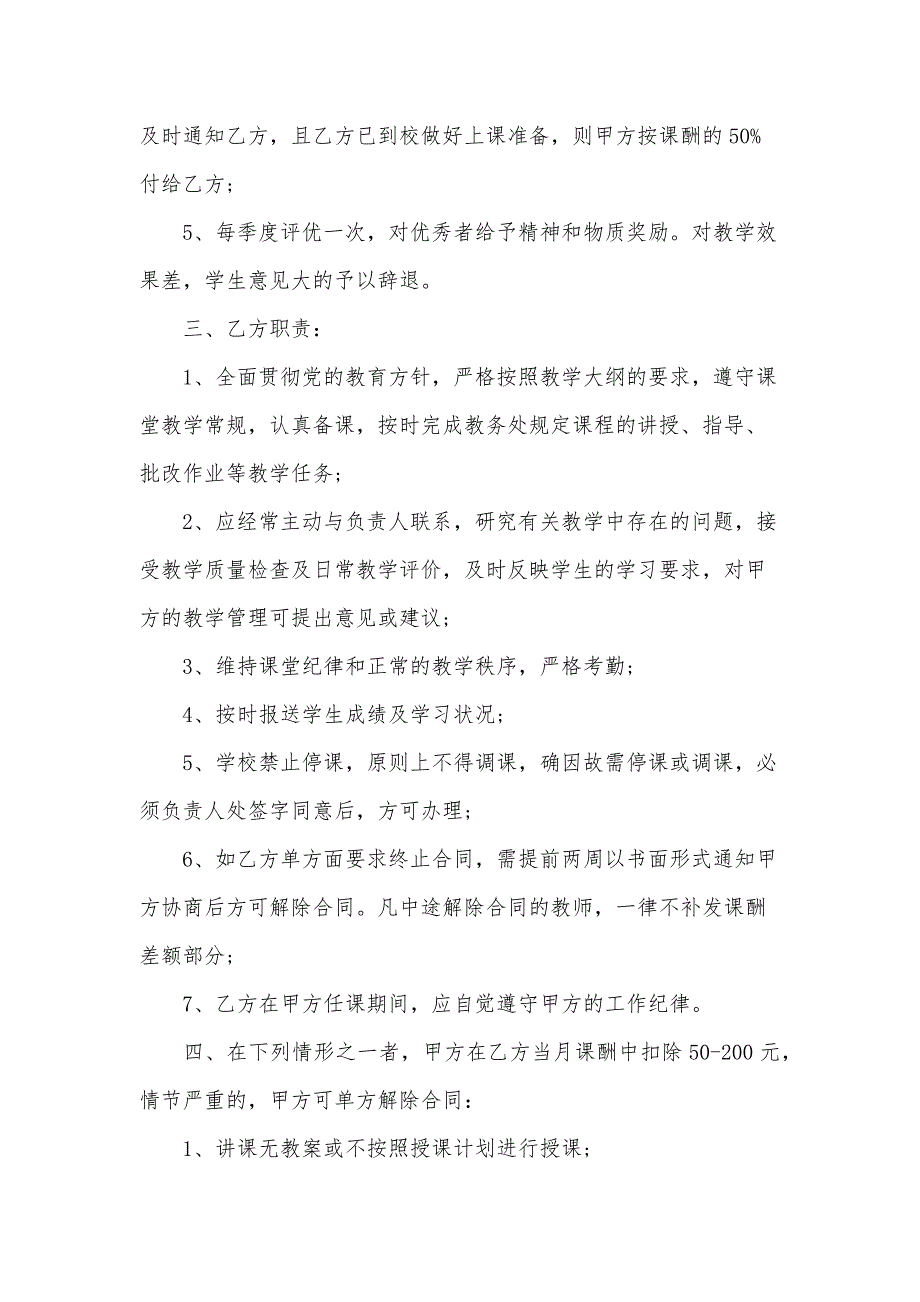 及时通知乙方，且乙方已到校做好上课准备，则甲方按课酬的50%
付给乙方;
5、每季度评优一次，对优秀者给予精神和物质奖励。对教学效
果差，学生意见大的予以辞退。
三、乙方职责：
1、全面贯彻党的教育方针，严格按照教学大纲的要求，遵守课
堂教学常规，认真备课，按时完成教务处规定课程的讲授、指导、
批改作业等教学任务;
2、应经常主动与负责人联系，研究有关教学中存在的问题，接
受教学质量检查及日常教学评价，及时反映学生的学习要求，对甲
方的教学管理可提出意见或建议;
3、维持课堂纪律和正常的教学秩序，严格考勤;
4、按时报送学生成绩及学习状况;
5、学校禁止停课，原则上不得调课，确因故需停课或调课，必
须负责人处签字同意后，方可办理;
6、如乙方单方面要求终止合同，需提前两周以书面形式通知甲
方协商后方可解除合同。凡中途解除合同的教师，一律不补发课酬
差额部分;
7、乙方在甲方任课期间，应自觉遵守甲方的工作纪律。
四、在下列情形之一者，甲方在乙方当月课酬中扣除50-200元，
情节严重的，甲方可单方解除合同：
1、讲课无教案或不按照授课计划进行授课;